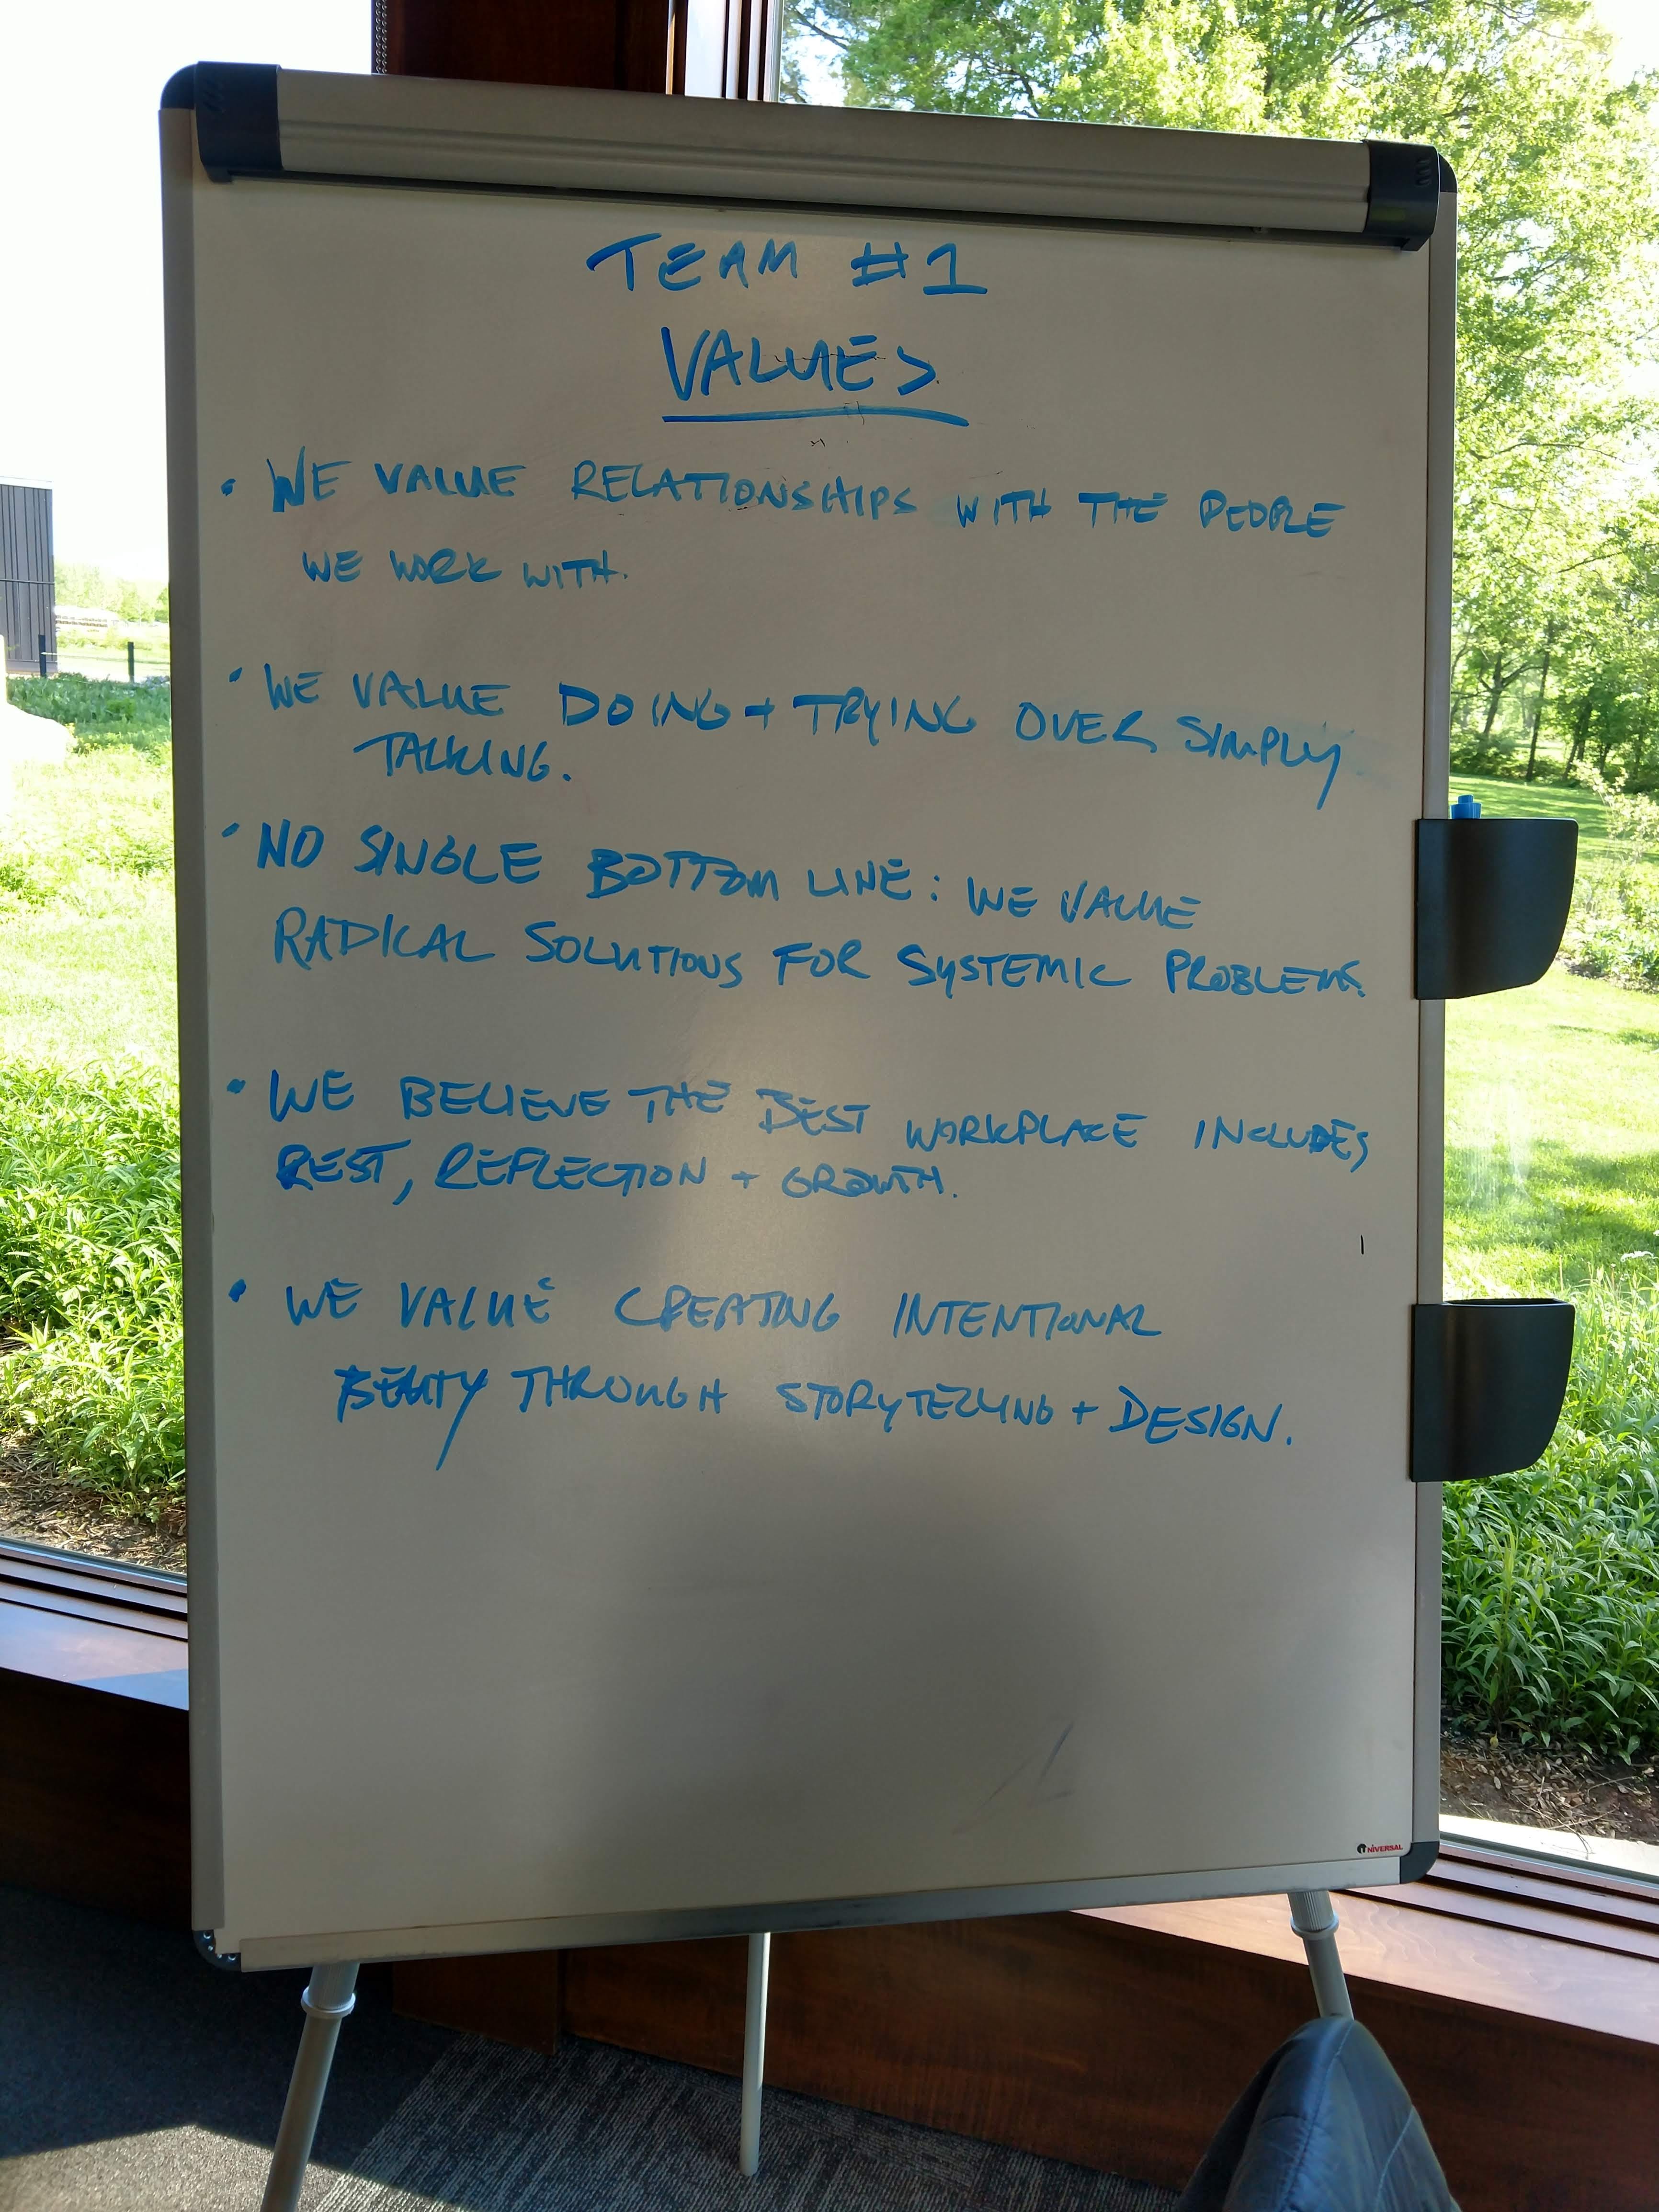 TEAM #1
VALUES
• WE VALUE RELATIONSHIPS WITH THE PEOPLE
WE WORK WITH.
• WE VALUE DOING + TRYING OVER SIMPLY
TALKING.
• NO SINGLE BOTTOM LINE: WE VALUE
RADICAL SOLUTIONS FOR SYSTEMIC PROBLEMS.
• WE BELIEVE THE BEST WORKPLACE INCLUDES
REST, REFLECTION + GROWTH.
• WE VALUE CREATING INTENTIONAL
BEAUTY THROUGH STORYTELLING + DESIGN.
UNIVERSAL